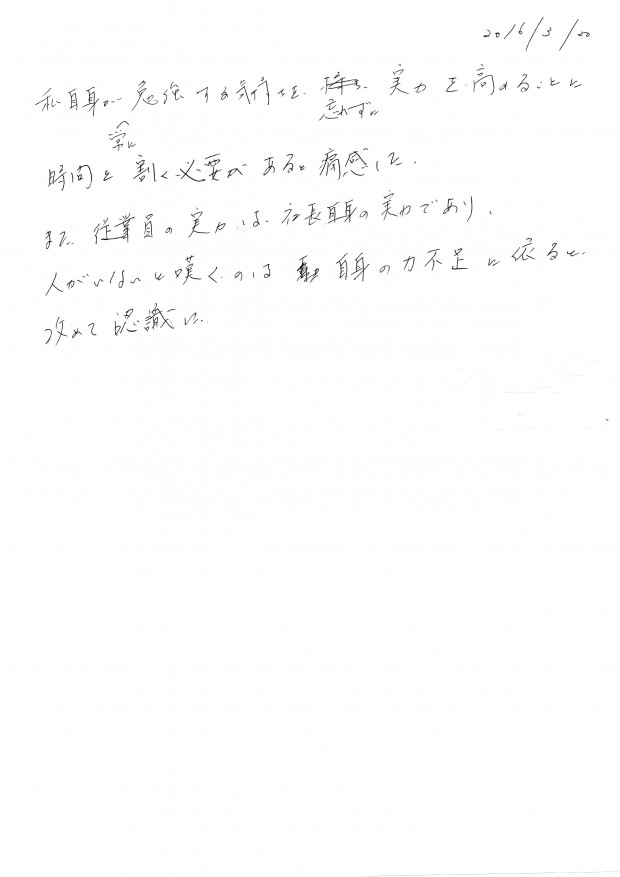 2016/3/20
私自身が勉強する気持を 忘れずに 実力を高めることに
常に
時間を割く必要があると痛感した.
また 従業員の実力は 社長自身の実力であり、
人がいないと嘆くのは 自身の力不足に依ると.
改めて認識した.